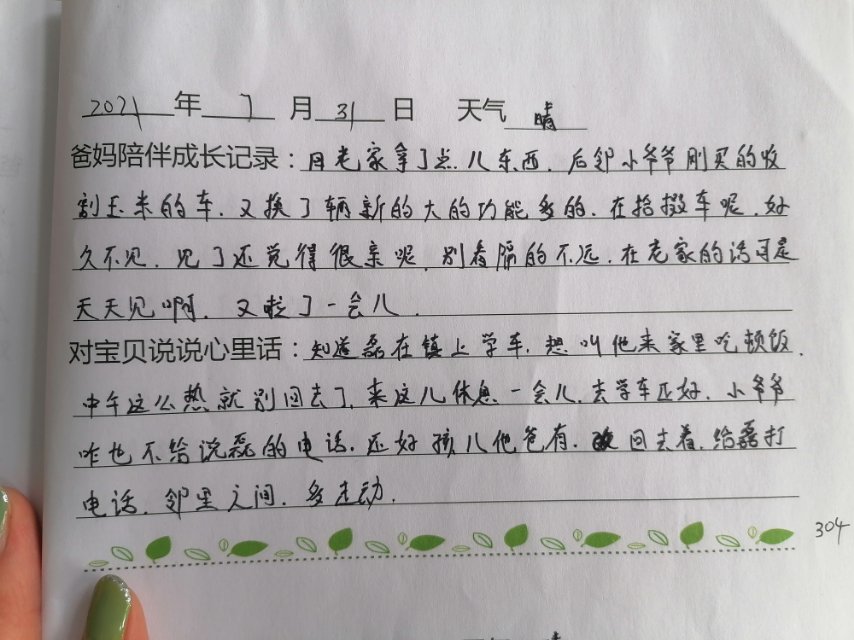 2021 年 7 月 31 日 天气 晴
爸妈陪伴成长记录：回老家拿了点儿东西，后邻小爷爷刚买的收
割玉米的车，又换了辆新的大的功能多的，在拾掇车呢，好
久不见，见了还觉得很亲呢，别看隔的不远，在老家的话可是
天天见啊，又啦了一会儿．
对宝贝说说心里话：知道磊在镇上学车，想叫他来家里吃顿饭，
中午这么热就别回去了，来这儿休息一会儿，去学车正好，小爷爷
咋也不给说磊的电话，还好孩儿他爸有，回去着，给磊打
电话，邻里之间，多走动．
304